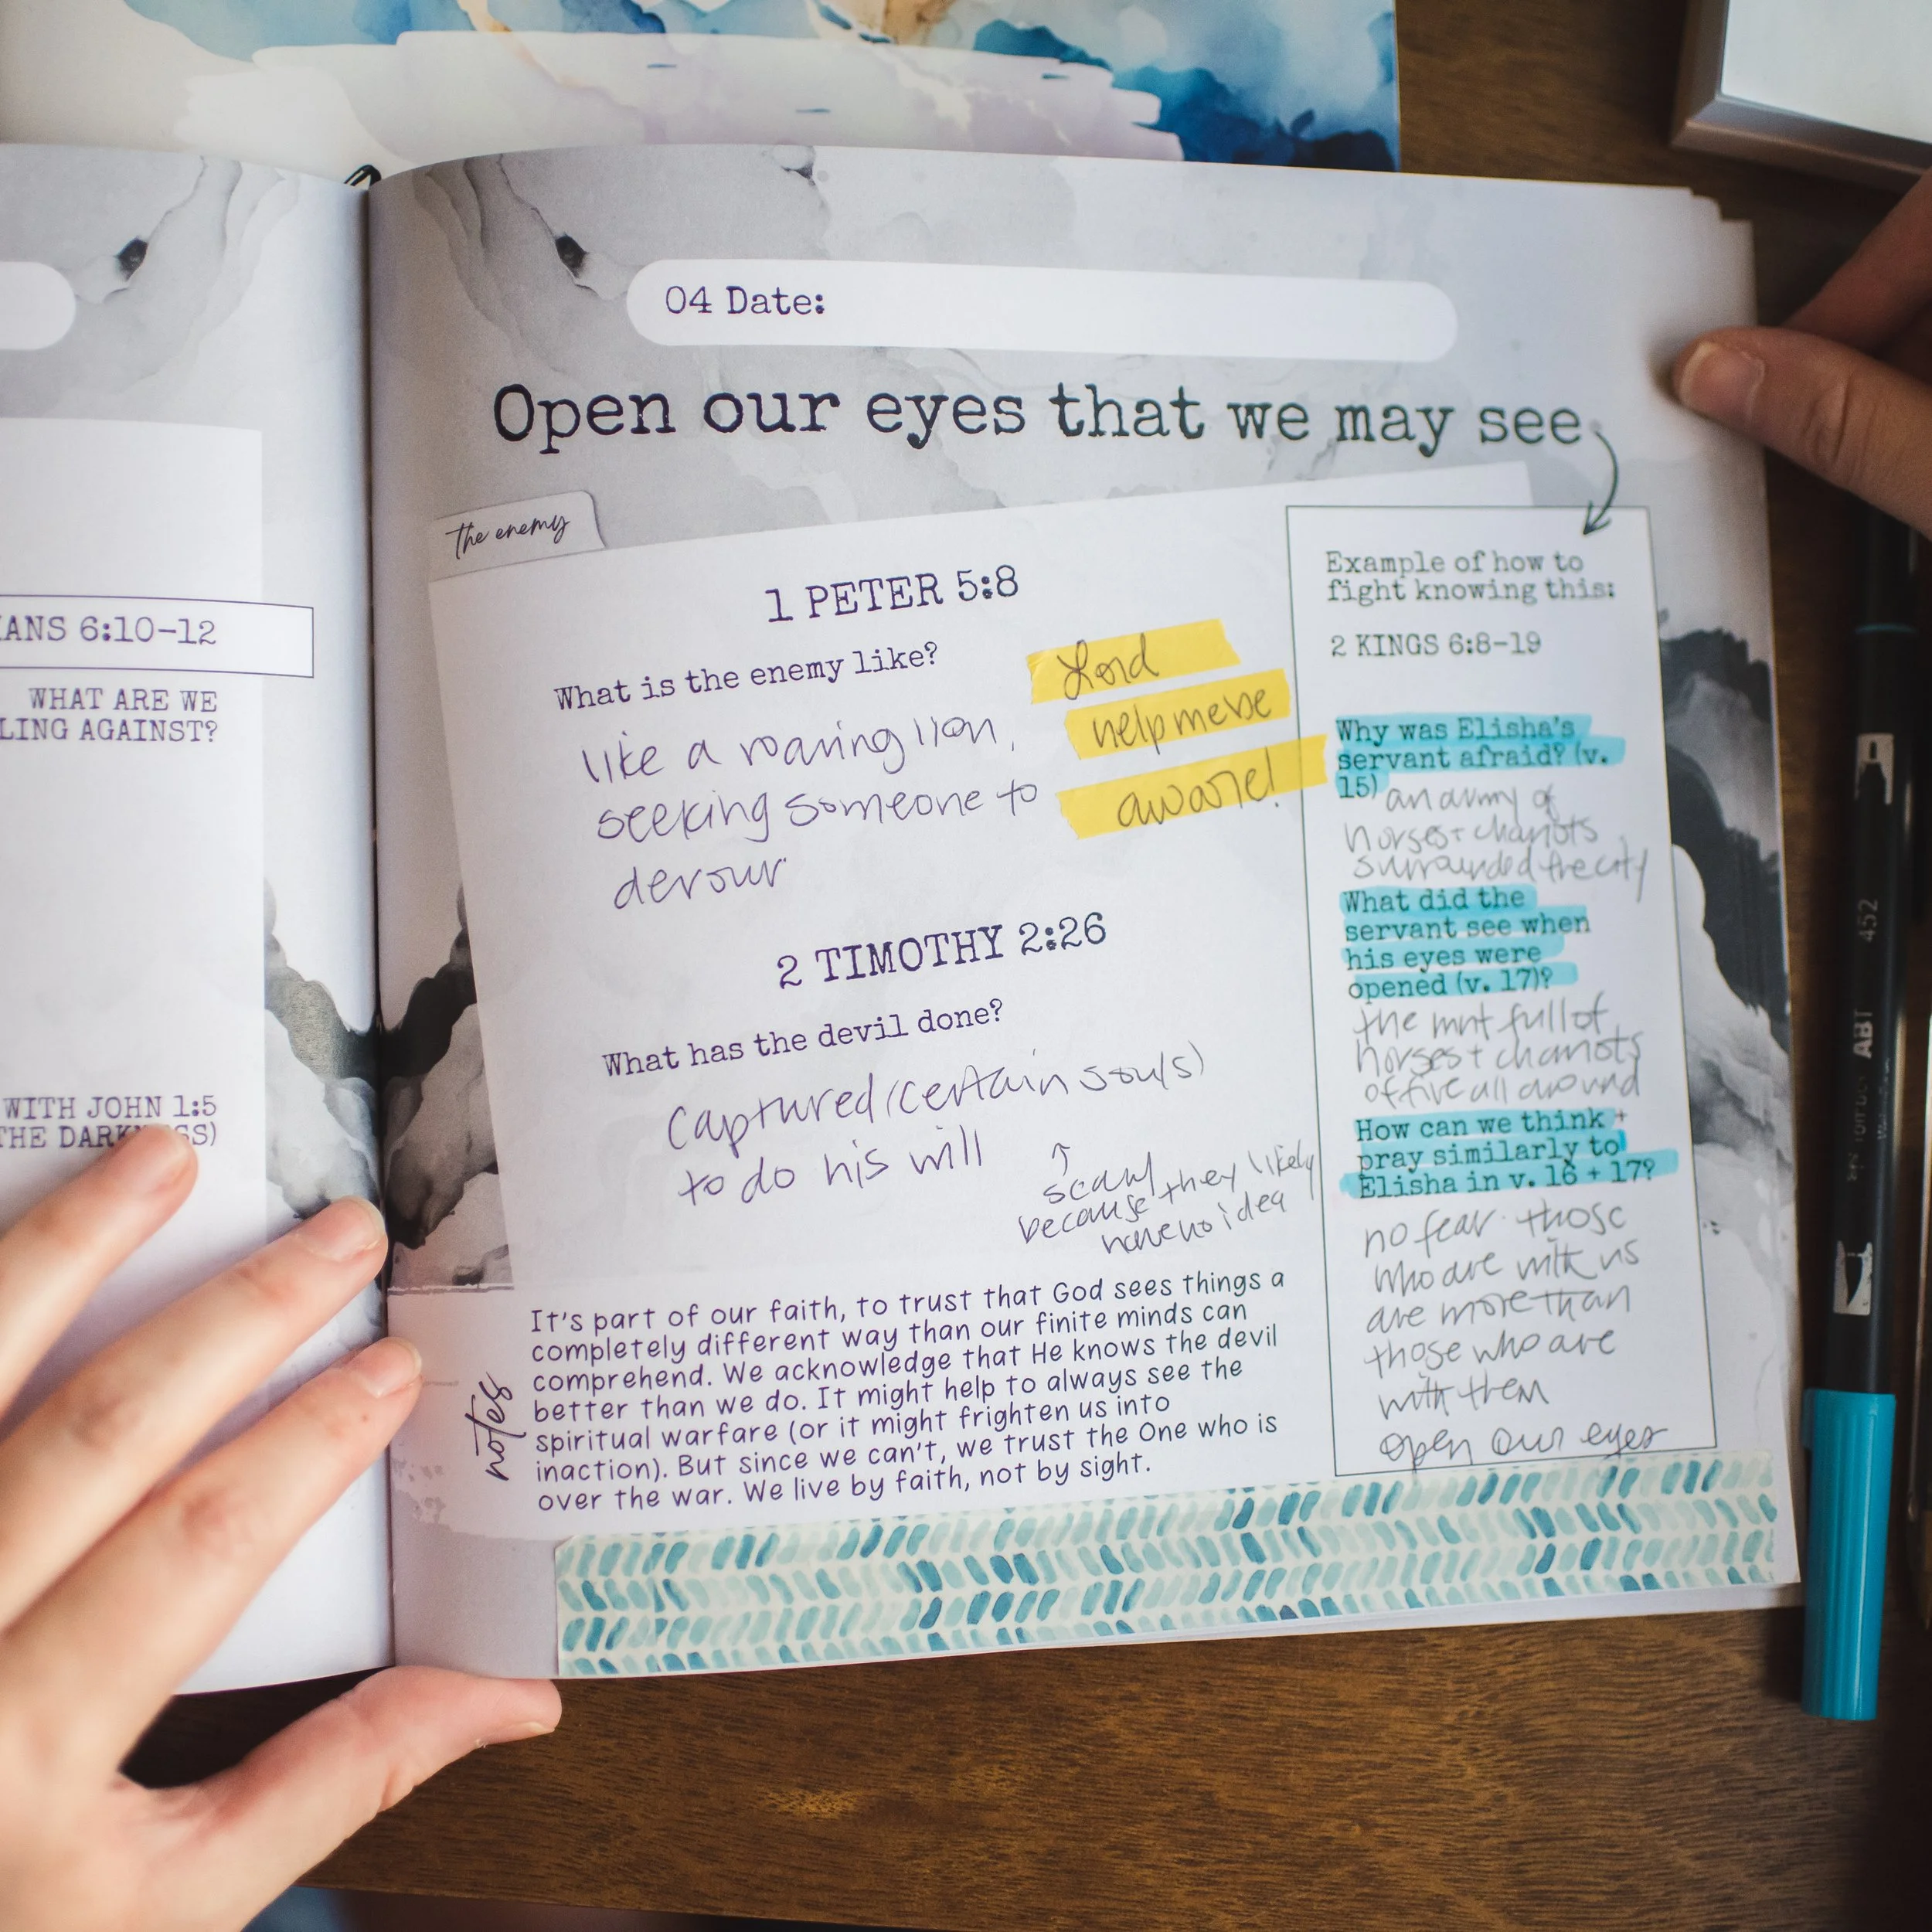 ANS 6:10-12
WHAT ARE WE
LING AGAINST?
WITH JOHN 1:5
THE DARKNESS)
04 Date:
Open our eyes that we may see
the enemy
1 PETER 5:8
What is the enemy like?
like a roaring lion,
seeking someone to
devour
Lord
help me be
aware!
2 TIMOTHY 2:26
What has the devil done?
Captured (certain souls)
to do his will
↑
scary
because they likely
have no idea
notes
It's part of our faith, to trust that God sees things a
completely different way than our finite minds can
comprehend. We acknowledge that He knows the devil
better than we do. It might help to always see the
spiritual warfare (or it might frighten us into
inaction). But since we can't, we trust the One who is
over the war. We live by faith, not by sight.
Example of how to
fight knowing this:
2 KINGS 6:8-19
Why was Elisha's
servant afraid? (v.
15) an army of
horses + chariots
surrounded the city
What did the
servant see when
his eyes were
opened (v. 17)?
the mnt full of
horses + chariots
of fire all around
How can we think +
pray similarly to
Elisha in v. 16 + 17?
no fear. those
who are with us
are more than
those who are
with them
open our eyes
ABT 452